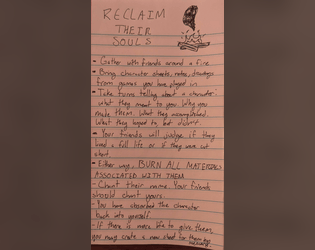 RECLAIM
THEIR
SOULS
- Gather with friends around a fire
- Bring character sheets, notes, drawings
from games you have played in
- Take turns telling about a character:
what they meant to you. Why you
made them. What they accomplished.
What they hoped to but didn't.
- Your friends will judge if they
lived a full life or if they were cut
short.
- Either way, BURN ALL MATERIALS
ASSOCIATED WITH THEM
- Chant their name. Your friends
should chant yours.
- You have absorbed the character
back into yourself.
- If there is more life to give them,
you may create a new sheet for them